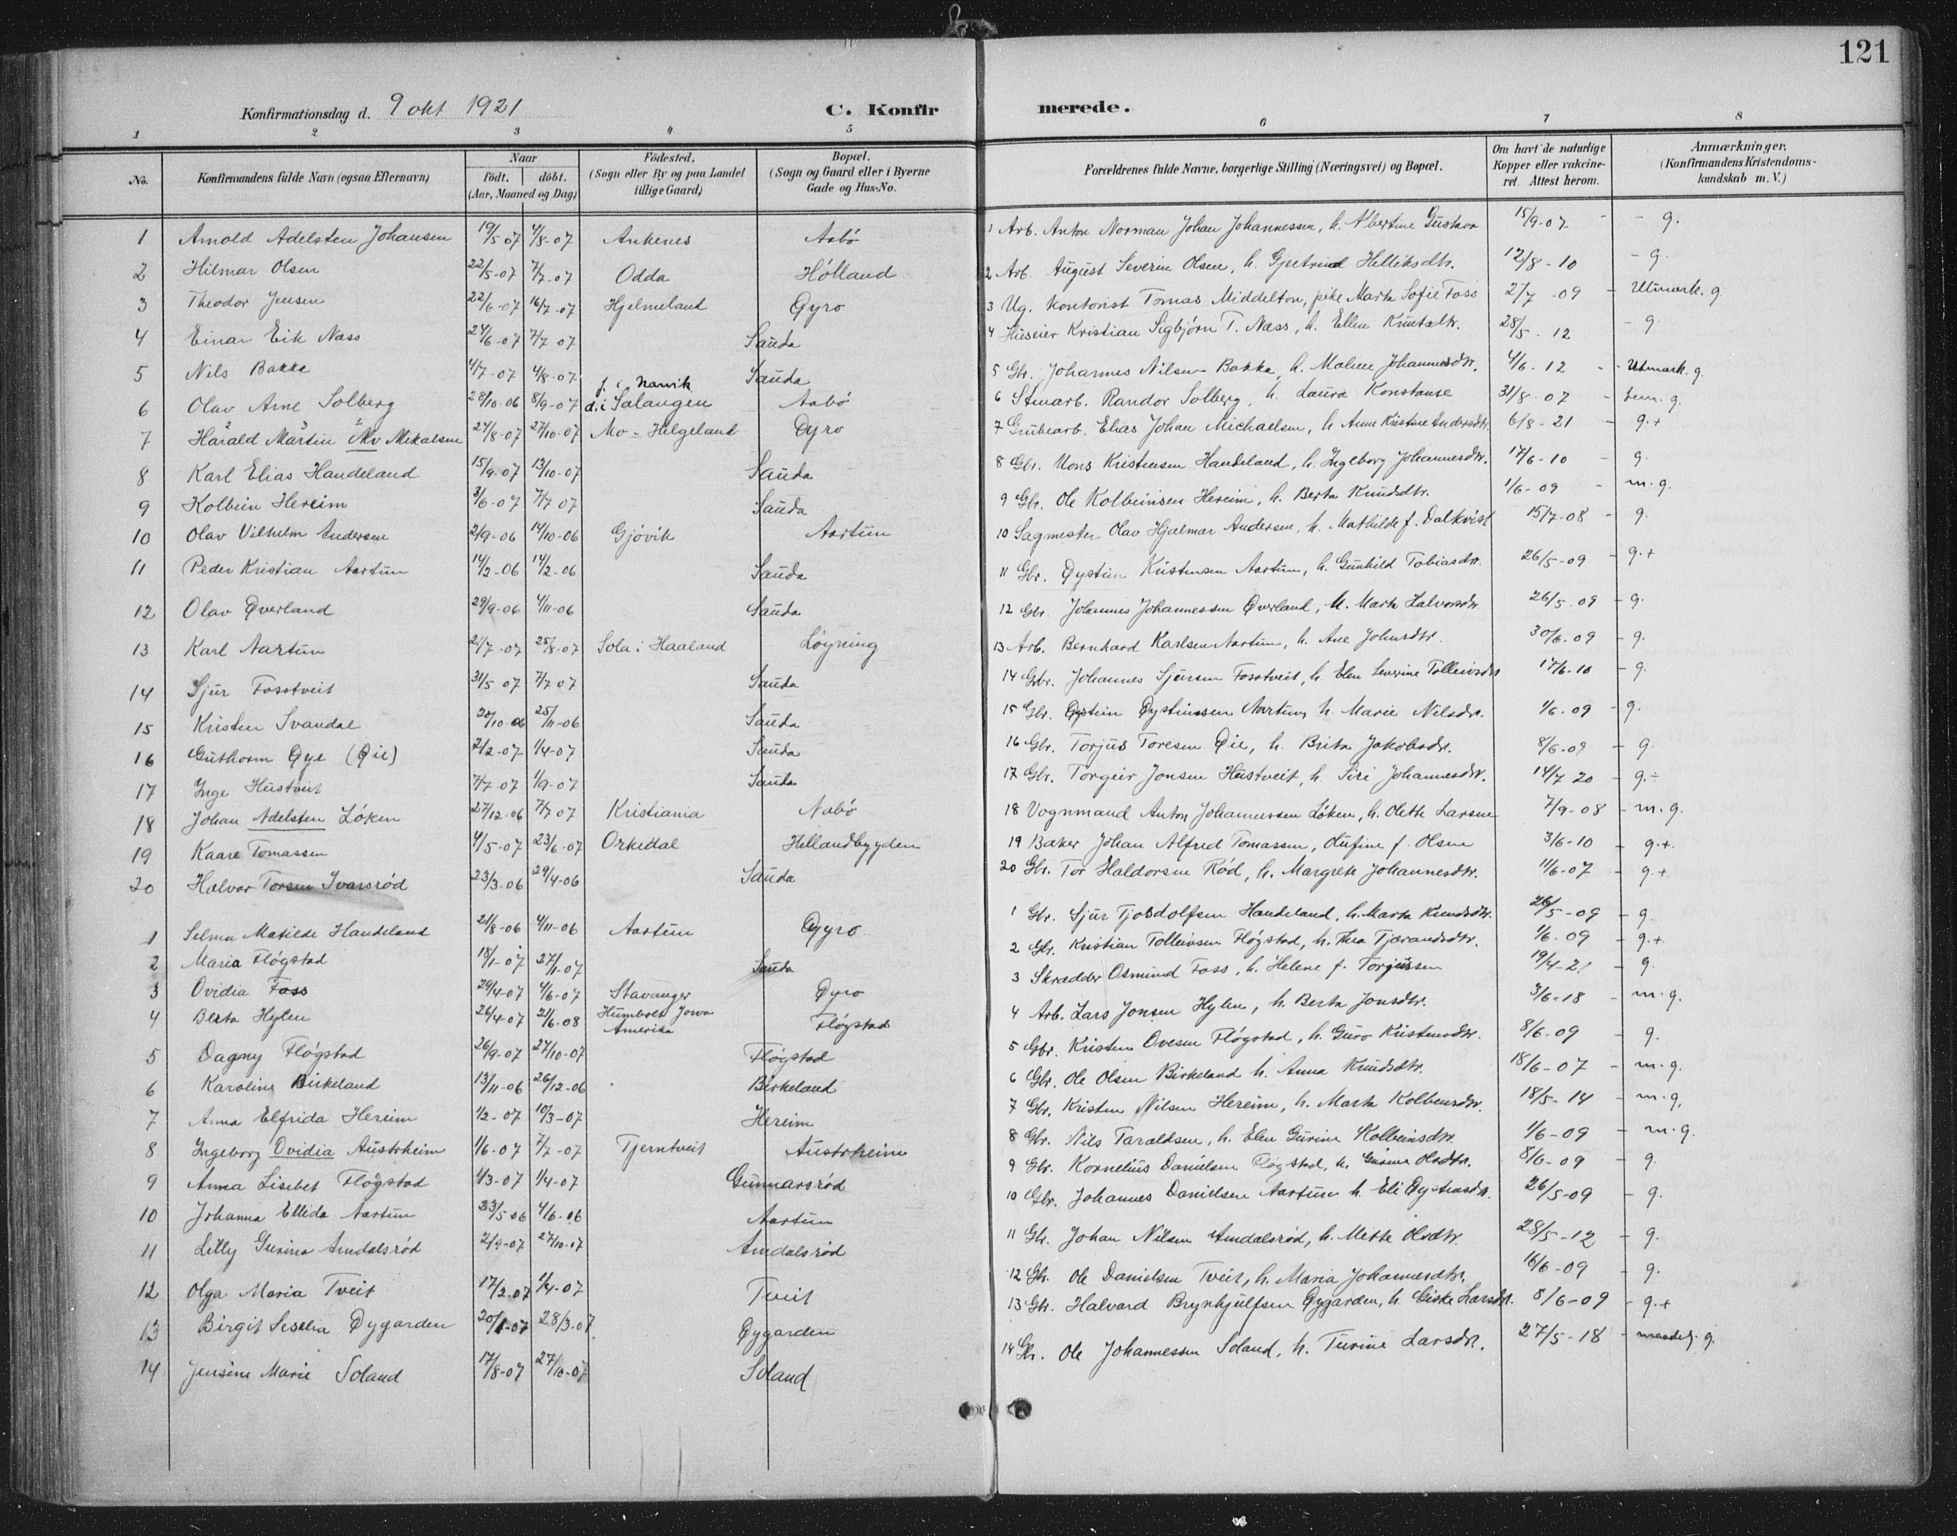 121
Konfirmationsdag d. 9 okt 1921
C. Konfirmerede.
1 2 3 4 5 6 7 8
No. Konfirmandens fulde Navn (ogsaa Efternavn) Naar Födt. döbt. (Aar, Maaned og Dag) Födested. (Sogn eller By og paa Landet tillige Gaard) Bopæl. (Sogn og Gaard eller i Byerne Gade og Hus-No. Forældrenes fulde Navne, borgerlige Stilling (Næringsvei) og Bopæl. Om havt de naturlige Kopper eller vakcineret. Attest herom. Anmærkninger. (Konfirmandens Kristendomskundskab m. V.)
1 Arnold Adelsten Johansen 19/5 07 4/8-07 Ankenes Aabö 1 Arb. Anton Norman Johan Johannessen, h. Albertine Gustava 15/9-07 - g.
2 Hilmar Olsen 22/5-07 7/7-07 Odda Hölland 2 Arb. August Severin Olsen, h. Gjertrud Helliksdtr. 12/8-10 - g.
3 Theodor Jensen 22/6-07 16/7-07 Hjelmeland Øyro 3 Ug. Kontorist Tomas Middelton, pike Marta Sofie Foss 27/7-09 - Utmerk. g
4 Einar Eik Næss 24/6-07 7/7 07 Sauda 4 Huseier Kristian Sigbjörn T. Næss, h. Ellen Knutsdtr. 28/5-12 - g.
5 Nils Bakka 4/7-07 4/8-07 Sauda 5 Gbr. Johannes Nilsen Bakka, h. Malene Johannesdtr. 4/6-12 - Utmerk. g.
6 Olav Arne Solberg 28/10-06 8/9-07 f. i Narvik d. i Salangen Aabö 6 Stenarb. Randor Solberg, h. Laura Konstanse 31/8-07 - g.
7 Harald Martin Mikalsen 24/8-07 27/10-07 Mo - Helgeland Öyro 7 Grubearb. Elias Johan Michaelsen, h. Anne Kristine Andersdtr. 6/8-21 - g.+
8 Karl Elias Handeland 15/9-07 13/10-07 Sauda 8 Gbr. Mons Kristensen Handeland, h. Ingeborg Johannesdtr. 17/6-10 - g.
9 Kolbein Hereim 3/6-07 7/7 07 Sauda 9 Gbr. Ole Kolbeinsen Hereim, h. Berta Knudsdtr. 1/6-09 - m. g.
10 Olav Vilhelm Andersen 2/9-06 14/10-06 Gjövik Aartun 10 Sagmester Olav Hjalmar Andersen, h. Mathilde f. Dalkvist 15/7-08 - g.
11 Peder Kristian Aartun 14/2-06 14/2-06 Sauda 11 Gbr. Øystein Kristensen Aartun, h. Gunhild Tobiasdtr. 26/5-09 - g.+
12 Olav Øverland 29/9-06 4/11-06 Sauda 12 Gbr. Johannes Johannessen Øverland, h. Marta Halvorsdtr. 26/5 09 - g.
13 Karl Aartun 21/7-07 25/8-07 Sola i Haaland Löyning 13 Arb. Bernhard Karlsen Aartun, h. Ane Johnsdtr. 30/6-09 - g.
14 Sjur Fosstveit 31/5 07 7/7 07 Sauda 14 Gbr. Johannes Sjursen Fosstveit, h. Elen Severine Tolleivsdtr 17/6-10 - g.
15 Kristen Svandal 20/10-06 25/11-06 Sauda 15 Gbr. Øystein Øysteinssen Aartun, h. Marie Nilsdtr. 1/6-09 - g.
16 Guthorm Øye (Øie) 2/2-07 1/4-07 Sauda 16 Gbr. Torjus Toresen Øie, h. Brita Jakobsdtr. 8/6-09 - g.
17 Inge Hustveit 7/7-07 1/9-07 Sauda 17 Gbr. Torgeir Jonsen Hustveit, h. Siri Johannesdtr. 14/7 20 - g.÷
18 Johan Adelsten Löken 27/12-06 7/7 07 Kristiania Aabö 18 Vognmand Anton Johannessen Löken, h. Olette Larsen 7/9-08 - m. g.
19 Kaare Tomassen 4/5-07 23/6-07 Orkedal Hellandbygden 19 Baker Johan Alfred Tomassen, Olufine f. Olsen 3/6-10 - g.+.
20 Halvor Torsen Ivarsröd 23/3-06 29/4-06 Sauda 20 Gbr. Tor Haldorsen Röd, h. Margrete Johannesdtr. 11/6-07 - g.+
1 Selma Matilde Handeland 21/8-06 4/11-06 Aartun Øyro 1 Gbr. Sjur Tjosdolfsen Handeland, h. Marta Knudsdtr. 26/5-09 - g.
2 Maria Flögstad 18/1-07 27/1-07 Sauda 2 Gbr. Kristian Tolleivsen Flögstad, h. Thea Tjerandsdtr. 1/6-09 - g.+.
3 Ovidia Foss 29/4-07 4/6-07 Stavanger Øyro 3 Skrædder Osmund Foss, h. Helene f. Torjussen 19/4-21 - g.
4 Berta Hylen 26/4-07 2/6-08 Humbolt Jowa Amerika Flögstad 4 Arb. Lars Jonsen Hylen, h. Berta Jonsdtr. 3/6-18 - m. g.
5 Dagny Flögstad 26/9-07 27/10-07 Flögstad 5 Gbr. Kristen Ovesen Flögstad, h. Guro Kristensdtr. 8/6-09 - g.
6 Karoline Birkeland 13/11-06 26/12-06 Birkeland 6 Gbr. Ole Olsen Birkeland h. Anna Knudsdtr. 18/6-07 - m. g.
7 Anna Elfrida Hereim 1/2-07 10/3-07 Hereim 7 Gbr. Kristen Nilsen Hereim, h. Marta Kolbensdtr. 18/5-14 - m. g.
8 Ingeborg Ovidia Austrheim 1/6-07 7/7-07 Tjerntveit Austrheim 8 Gbr. Nils Taraldsen, h. Elen Gurine Kolbeinsdtr. 1/6-09 - m. g.
9 Anna Lisebet Flögstad 4/3-07 1/4-07 Gunnarsröd 9 Gbr. Kornelius Danielsen Flögstad, h. Gurine Olsdtr. 8/6-09 - g.
10 Johanna Ellida Aartun 23/5 06 4/6-06 Aartun 10 Gbr. Johannes Danielsen Aartun h. Eli Øysteinsdtr. 26/5-09 - g.
11 Lilly Gurina Amdalsröd 2/9-07 27/10-07 Amdalsröd 11 Gbr. Johan Nilsen Amdalsröd, h. Mette Olsdtr. 28/5-12 - g.
12 Olga Maria Tveit 17/2-07 1/4-07 Tveit 12 Gbr. Ole Danielsen Tveit, h. Maria Johannesdtr. 16/6-09 - g.
13 Birgit Seselia Øygarden 20/1-07 28/3-07 Øygarden 13 Gbr. Halvard Brynhjulfsen Øygarden, h. Larsdtr. 8/6-09 - g.+
14 Jensine Marie Soland 17/8-07 27/10-07 Soland 14 Gbr. Ole Johannessen Soland, h. Turine Larsdtr. 27/5-18 - g.